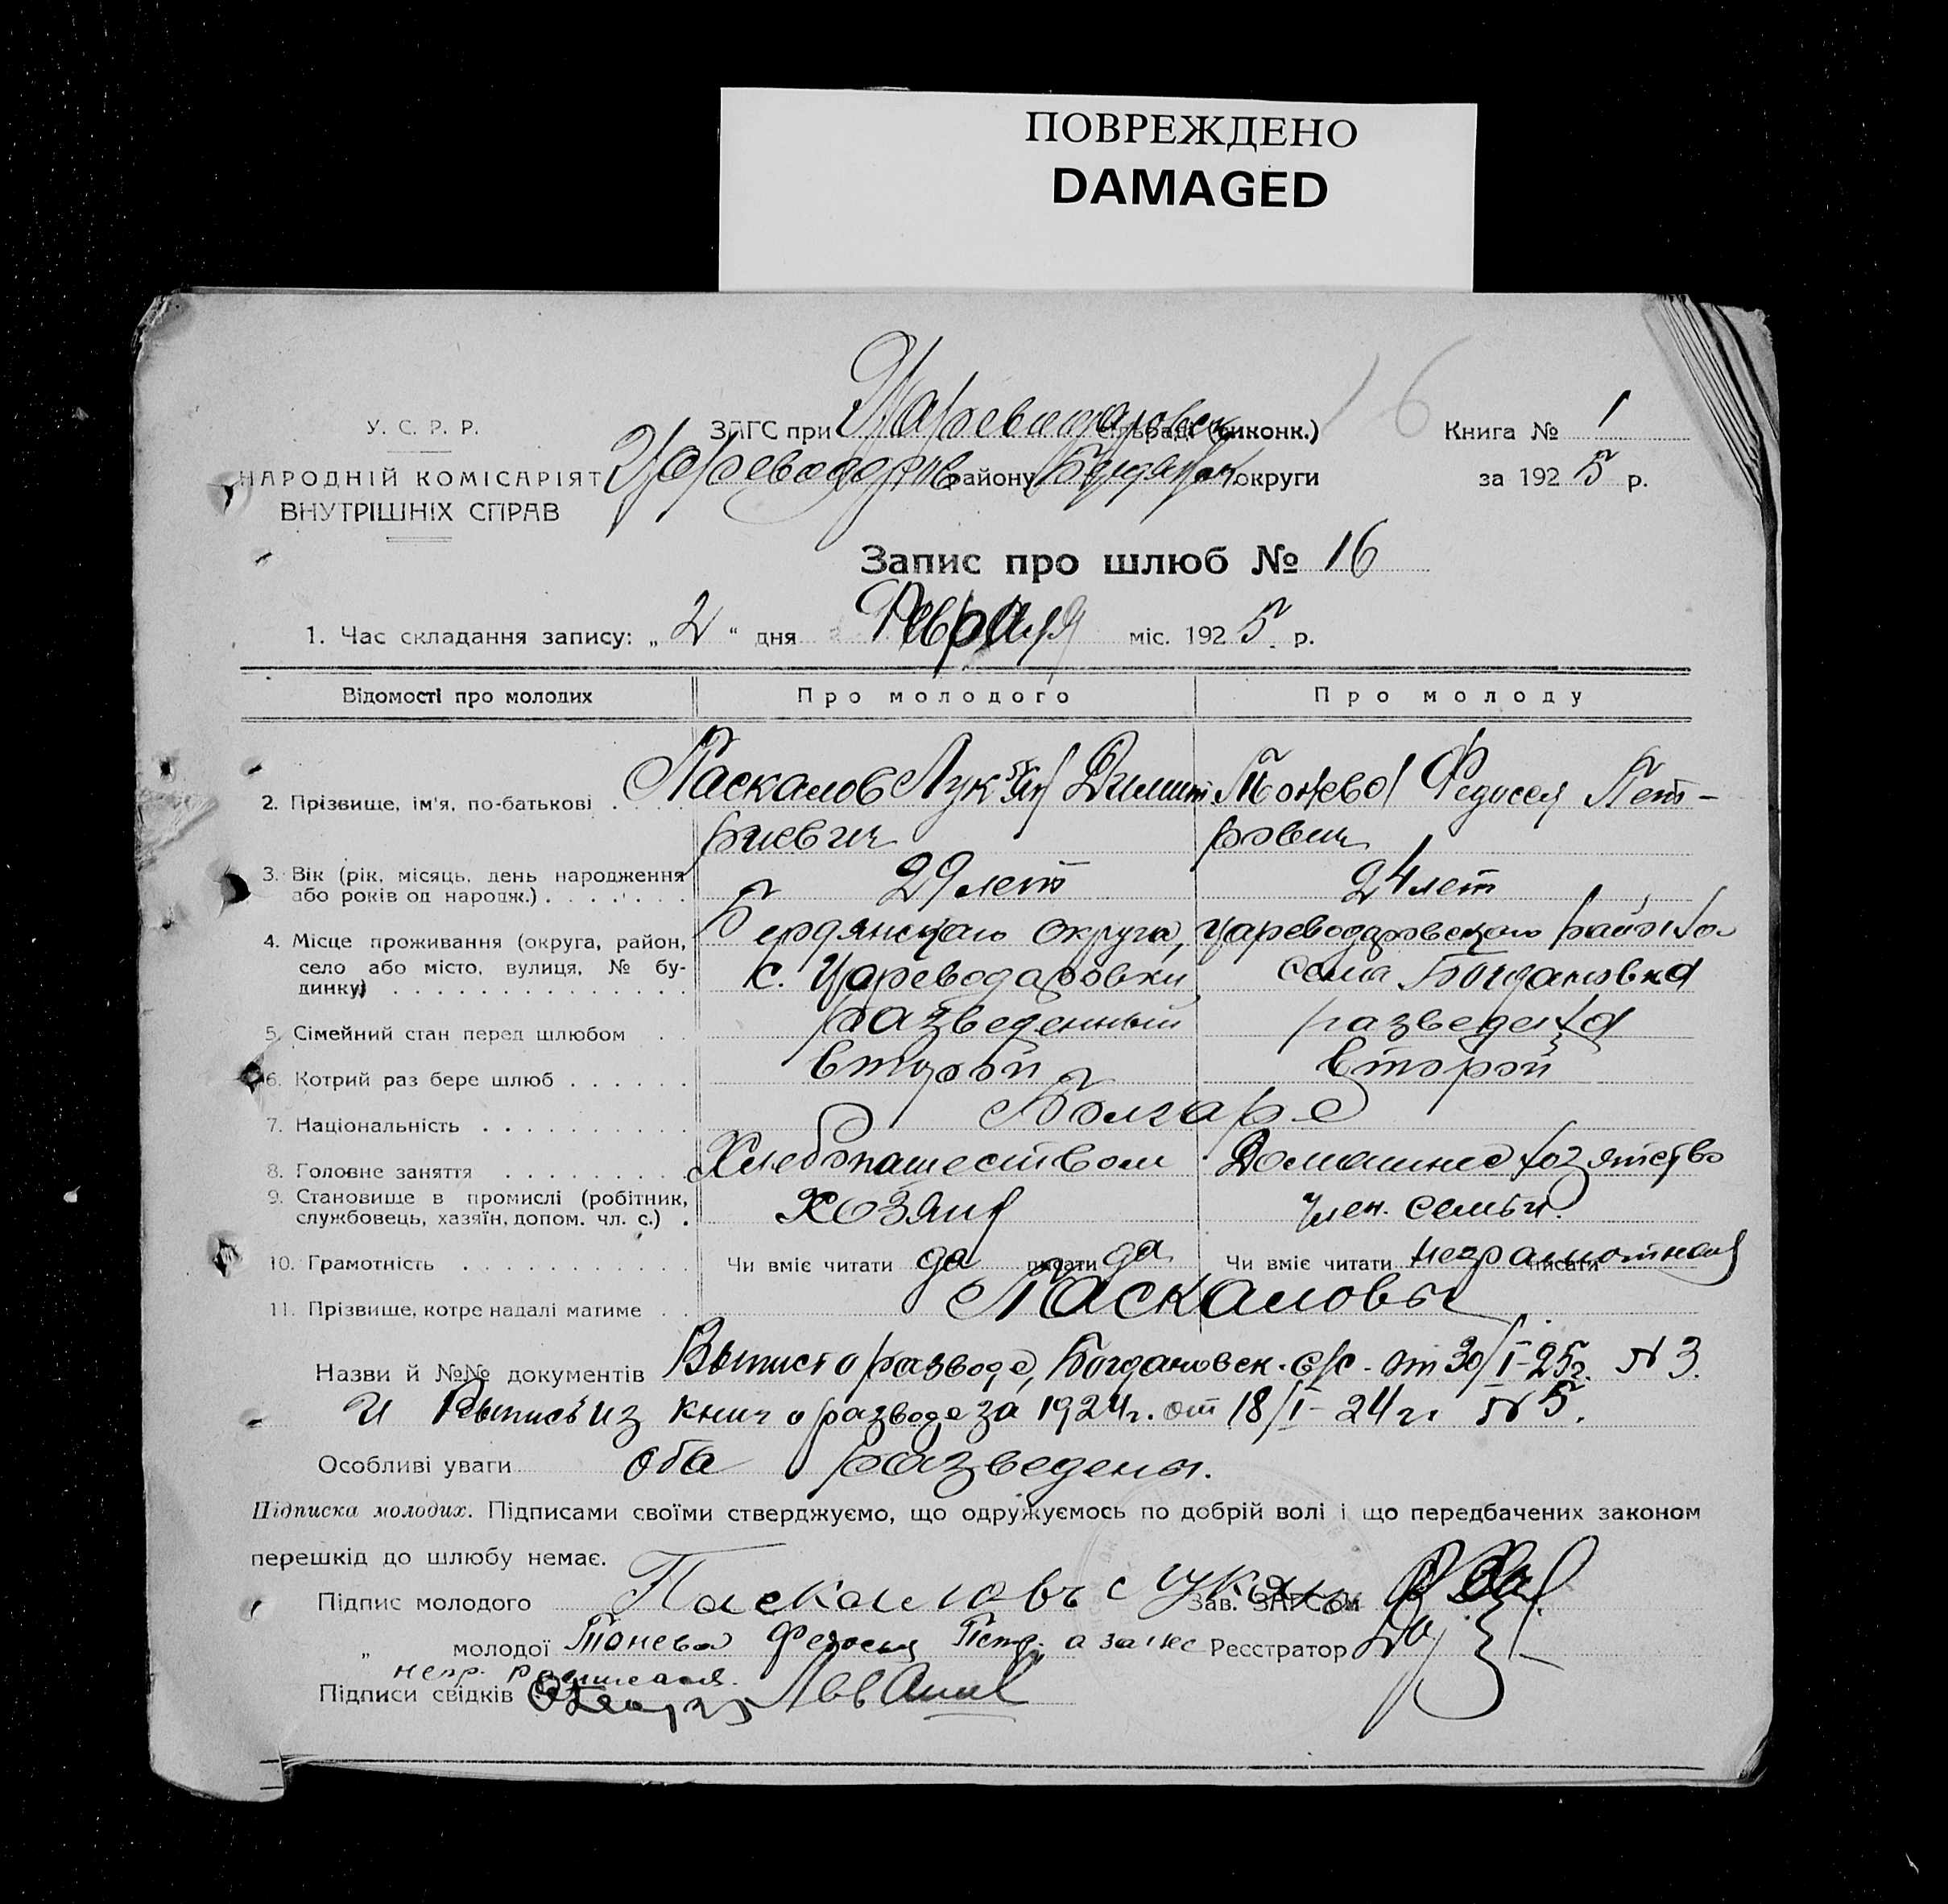 ПОВРЕЖДЕНО
DAMAGED
16
У. С. Р. Р.
НАРОДНІЙ КОМІСАРІЯТ
ВНУТРІШНІХ СПРАВ
ЗАГС при Цареводаровск сільраді (виконк.)
Цареводаров району Бердянск округи
Книга № 1
за 1925 р.
Запис про шлюб № 16
1. Час складання запису: „ 2 “ дня Февраля міс. 1925 р.
Відомості про молодих Про молодого Про молоду
2. Прізвище, ім'я, по-батькові . Паскалов Лукян Димит Тонева Федосея Пет-
риевич ровна
3. Вік (рік, місяць, день народження 29 лет 24 лет
або років од народж.)
4. Місце проживання (округа, район, Бердянского округа, Цареводаровского района
село або місто, вулиця, № бу- с. Цареводаровки села Богдановка
динку)
5. Сімейний стан перед шлюбом разведенный разведена
6. Котрий раз бере шлюб второй второй
7. Національність Болгаре
8. Головне заняття Хлебопашеством Домашнее хозяйство
9. Становище в промислі (робітник, Хозяин член семьи.
службовець, хазяїн, допом. чл. с.)
10. Грамотність Чи вміє читати да писати да Чи вміє читати неграмотная писати
11. Прізвище, котре надалі матиме Паскаловы
Назви й №№ документів Выпись о разводе, Богдановск. с/с. от 30/I-25г. № 3.
и Выпись из книг о разводе за 1924г. от 18/I-24 г. № 5.
Особливі уваги оба разведены.
Підписка молодих. Підписами своїми стверджуємо, що одружуємось по добрій волі і що передбачених законом
перешкід до шлюбу немає.
Підпис молодого Паскаловъ Лукянъ Зав. ЗАГСом
„ молодої Тонева Федосея Петр. а за нее Реєстратор
негр. расписался
Підписи свідків